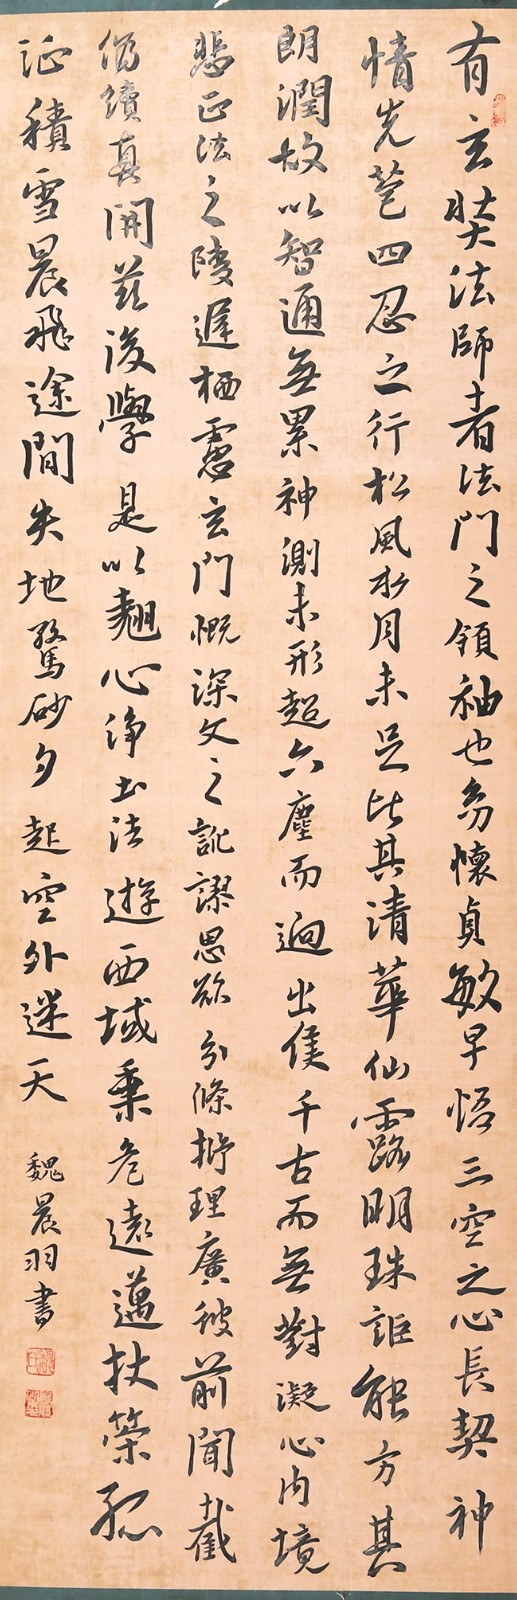 有玄奘法師者法門之領袖也幼懷貞敏早悟三空之心長契神
情先苞四忍之行松風水月未足比其清華仙露明珠詎能方其
朗潤故以智通無累神測未形超六塵而逈出隻千古而無對凝心內境
悲正法之陵遲栖慮玄門慨深文之訛謬思欲分條析理廣彼前聞截
偽續真開茲後學是以翹心淨土法遊西域乘危遠邁杖策孤
征積雪晨飛途間失地驚砂夕起空外迷天
魏晨羽書